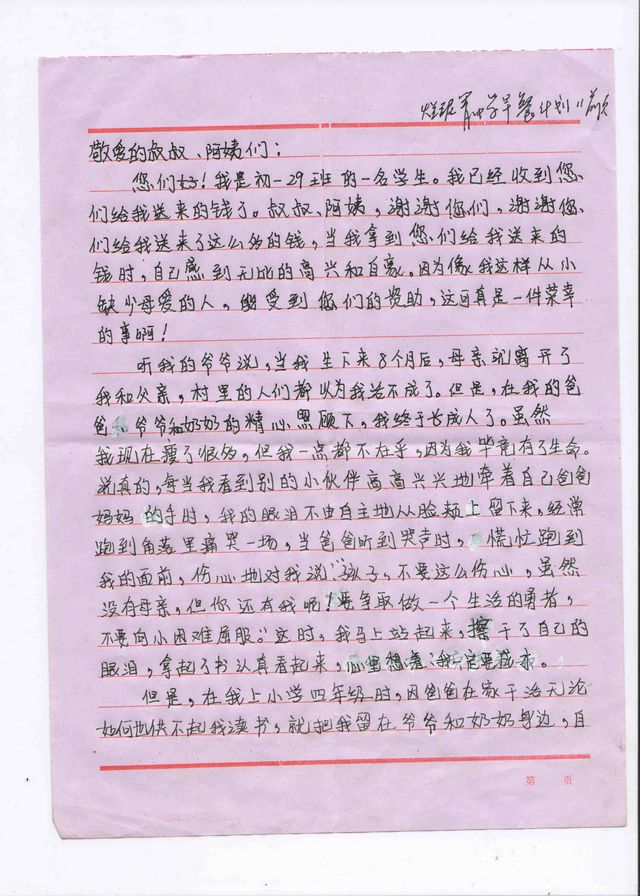 早餐计划
敬爱的叔叔、阿姨们：
您们好！我是初一29班的一名学生。我已经收到您
们给我送来的钱了。叔叔、阿姨，谢谢您们，谢谢您
们给我送来了这么多的钱，当我拿到您们给我送来的
钱时，自己感到无比的高兴和自豪。因为像我这样从小
缺少母爱的人，能受到您们的资助，这可真是一件荣幸
的事啊！
听我的爷爷说，当我生下来8个月后，母亲就离开了
我和父亲，村里的人们都以为我活不成了。但是，在我的爸
爸和爷爷和奶奶的精心照顾下，我终于长成人了。虽然
我现在瘦了很多，但我一点都不在乎，因为我毕竟有了生命。
说真的，每当我看到别的小伙伴高高兴兴地牵着自己爸爸
妈妈的手时，我的眼泪不由自主地从脸颊上留下来，经常
跑到角落里痛哭一场，当爸爸听到哭声时，慌忙跑到
我的面前，伤心地对我说："孩子，不要这么伤心，虽然
没有母亲，但你还有我呢！要争取做一个生活的勇者，
不要向小困难屈服。"这时，我马上站起来，擦干了自己的
眼泪，拿起了书认真看起来，心里想着：我一定要成才。
但是，在我上小学四年级时，因爸爸在家干活无论
如何也供不起我读书，就把我留在爷爷和奶奶身边，自
第 页